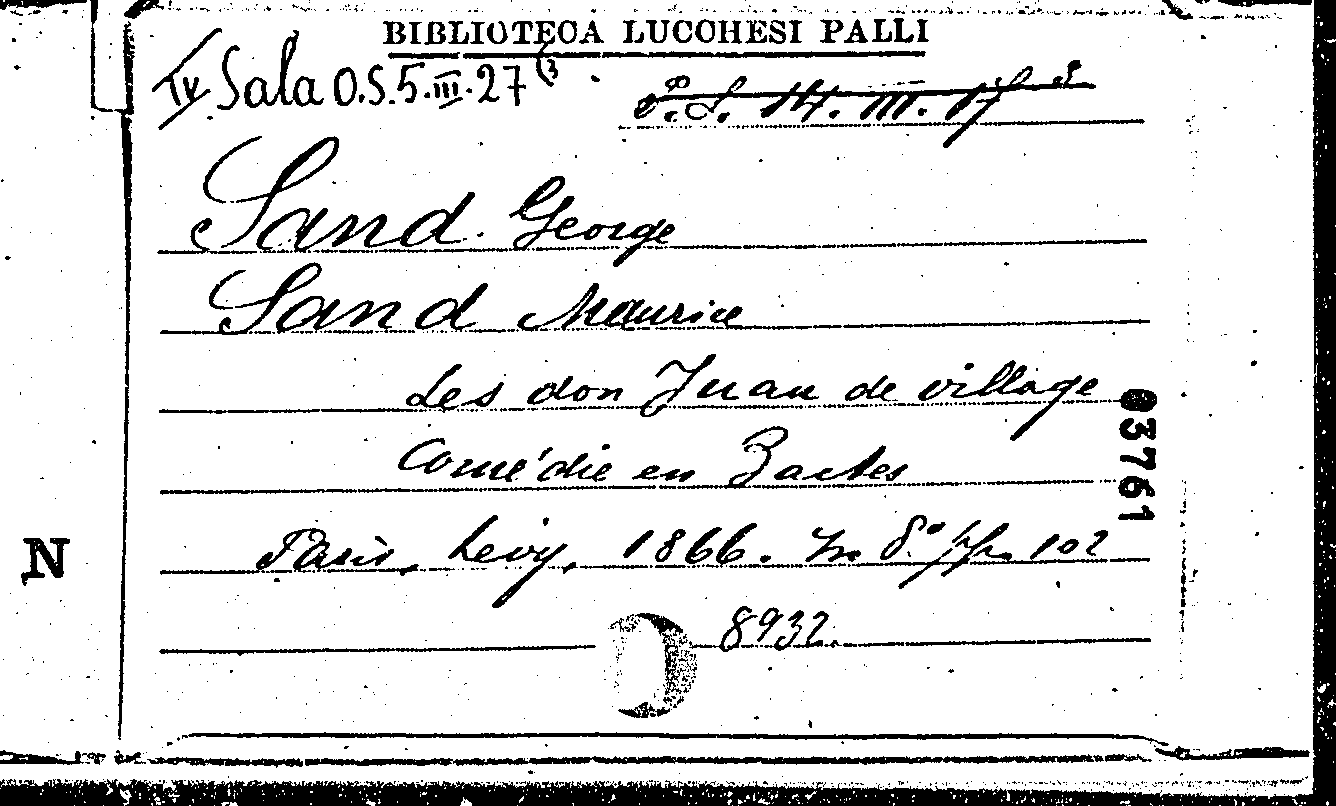 BIBLIOTECA LUCCHESI PALLI
IV Sala O.S.5.III.27(3
S. 14. III. 17 3
Sand. George
Sand Maurice
Les don Juan de village
Comédie en 3 actes
03761
Paris, Levy, 1866. In 8° pp. 102
N
8932.